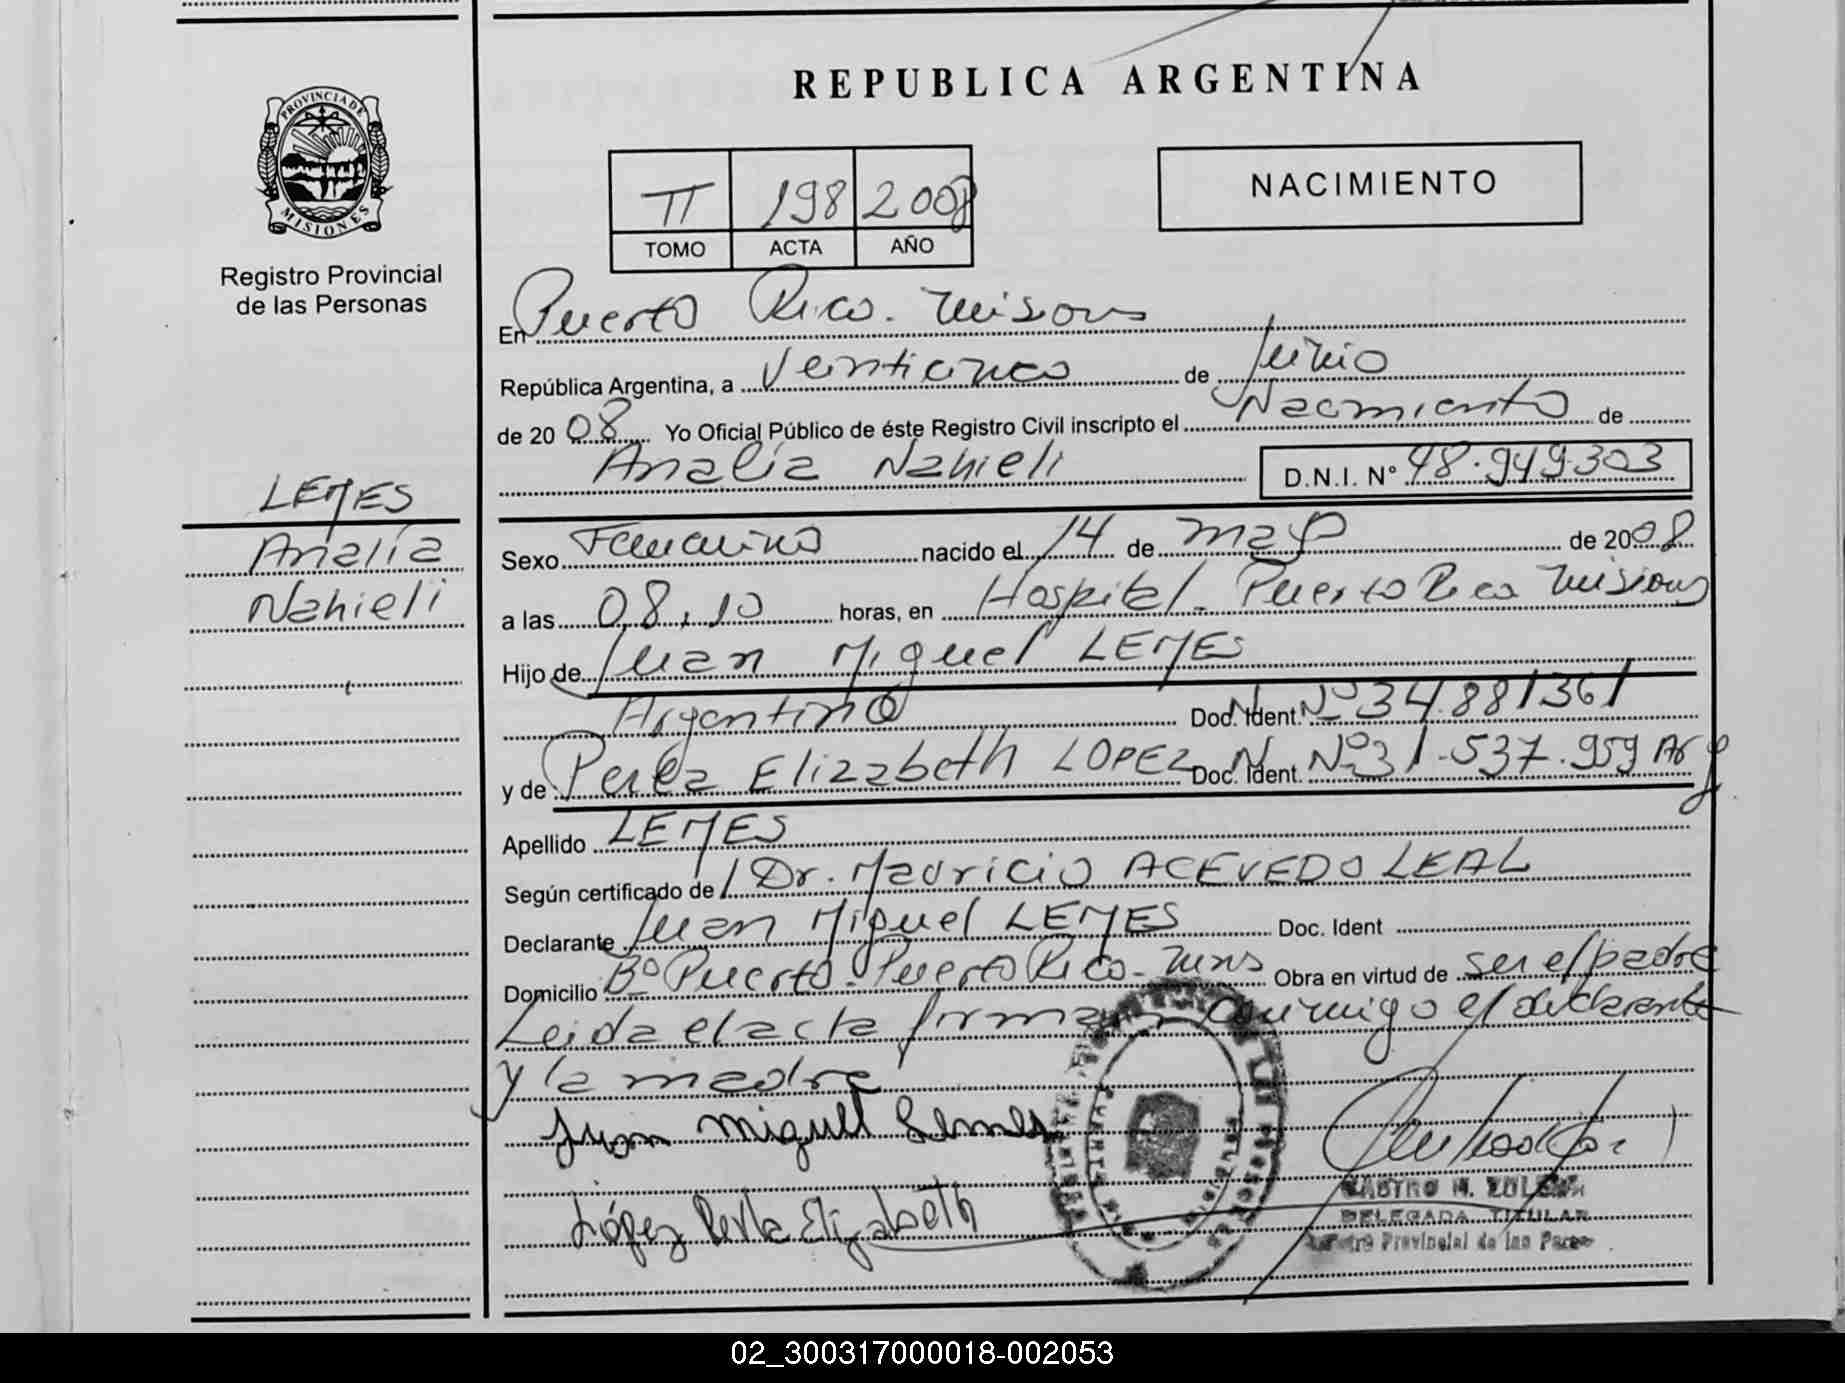 REPUBLICA ARGENTINA
PROVINCIA DE MISIONES
Registro Provincial
de las Personas
NACIMIENTO
II 198 2008
TOMO ACTA AÑO
En Puerto Rico. Misiones
República Argentina, a Veinticinco de Junio
de 2008 Yo Oficial Público de éste Registro Civil inscripto el Nacimiento de
Analía Nahieli D.N.I. N° 48.949.303
LEMES
Analía
Nahieli
Sexo Femenino nacido el 14 de mayo de 2008
a las 08,10 horas, en Hospital. Puerto Rico Misiones
Hijo de Juan Miguel LEMES
Argentino Doc. Ident. N Nº 34.881361
y de Perla Elizabeth LOPEZ Doc. Ident. N Nº 31.537.959 Arg
Apellido LEMES
Según certificado de Dr. Mauricio ACEVEDO LEAL
Declarante Juan Miguel LEMES Doc. Ident
Domicilio Bº Puerto. Puerto Rico. Mnes Obra en virtud de ser el padre
Leida el acta firman conmigo el declarante
y la madre
Juan Miguel Lemes
López Perla Elizabeth
CASTRO N. ZULEMA
DELEGADA TITULAR
Registro Provincial de las Personas
02_300317000018-002053